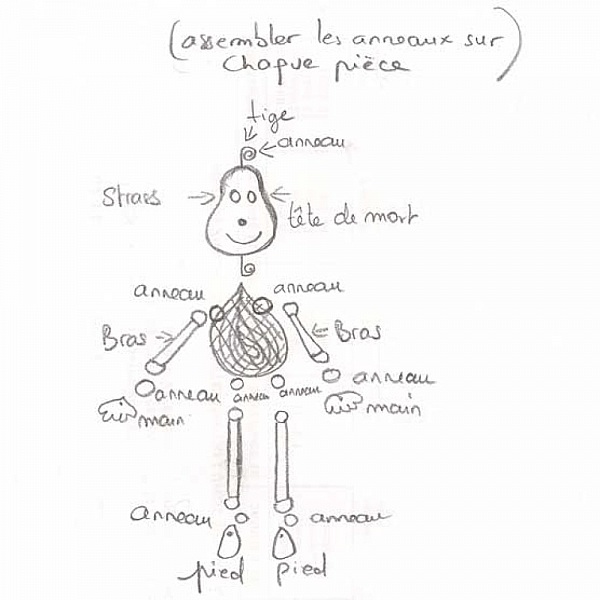 (assembler les anneaux sur)
chaque pièce
tige
anneau
Strass
tête de mort
anneau anneau
Bras Bras
anneau anneau anneau anneau
main main
anneau anneau
pied pied